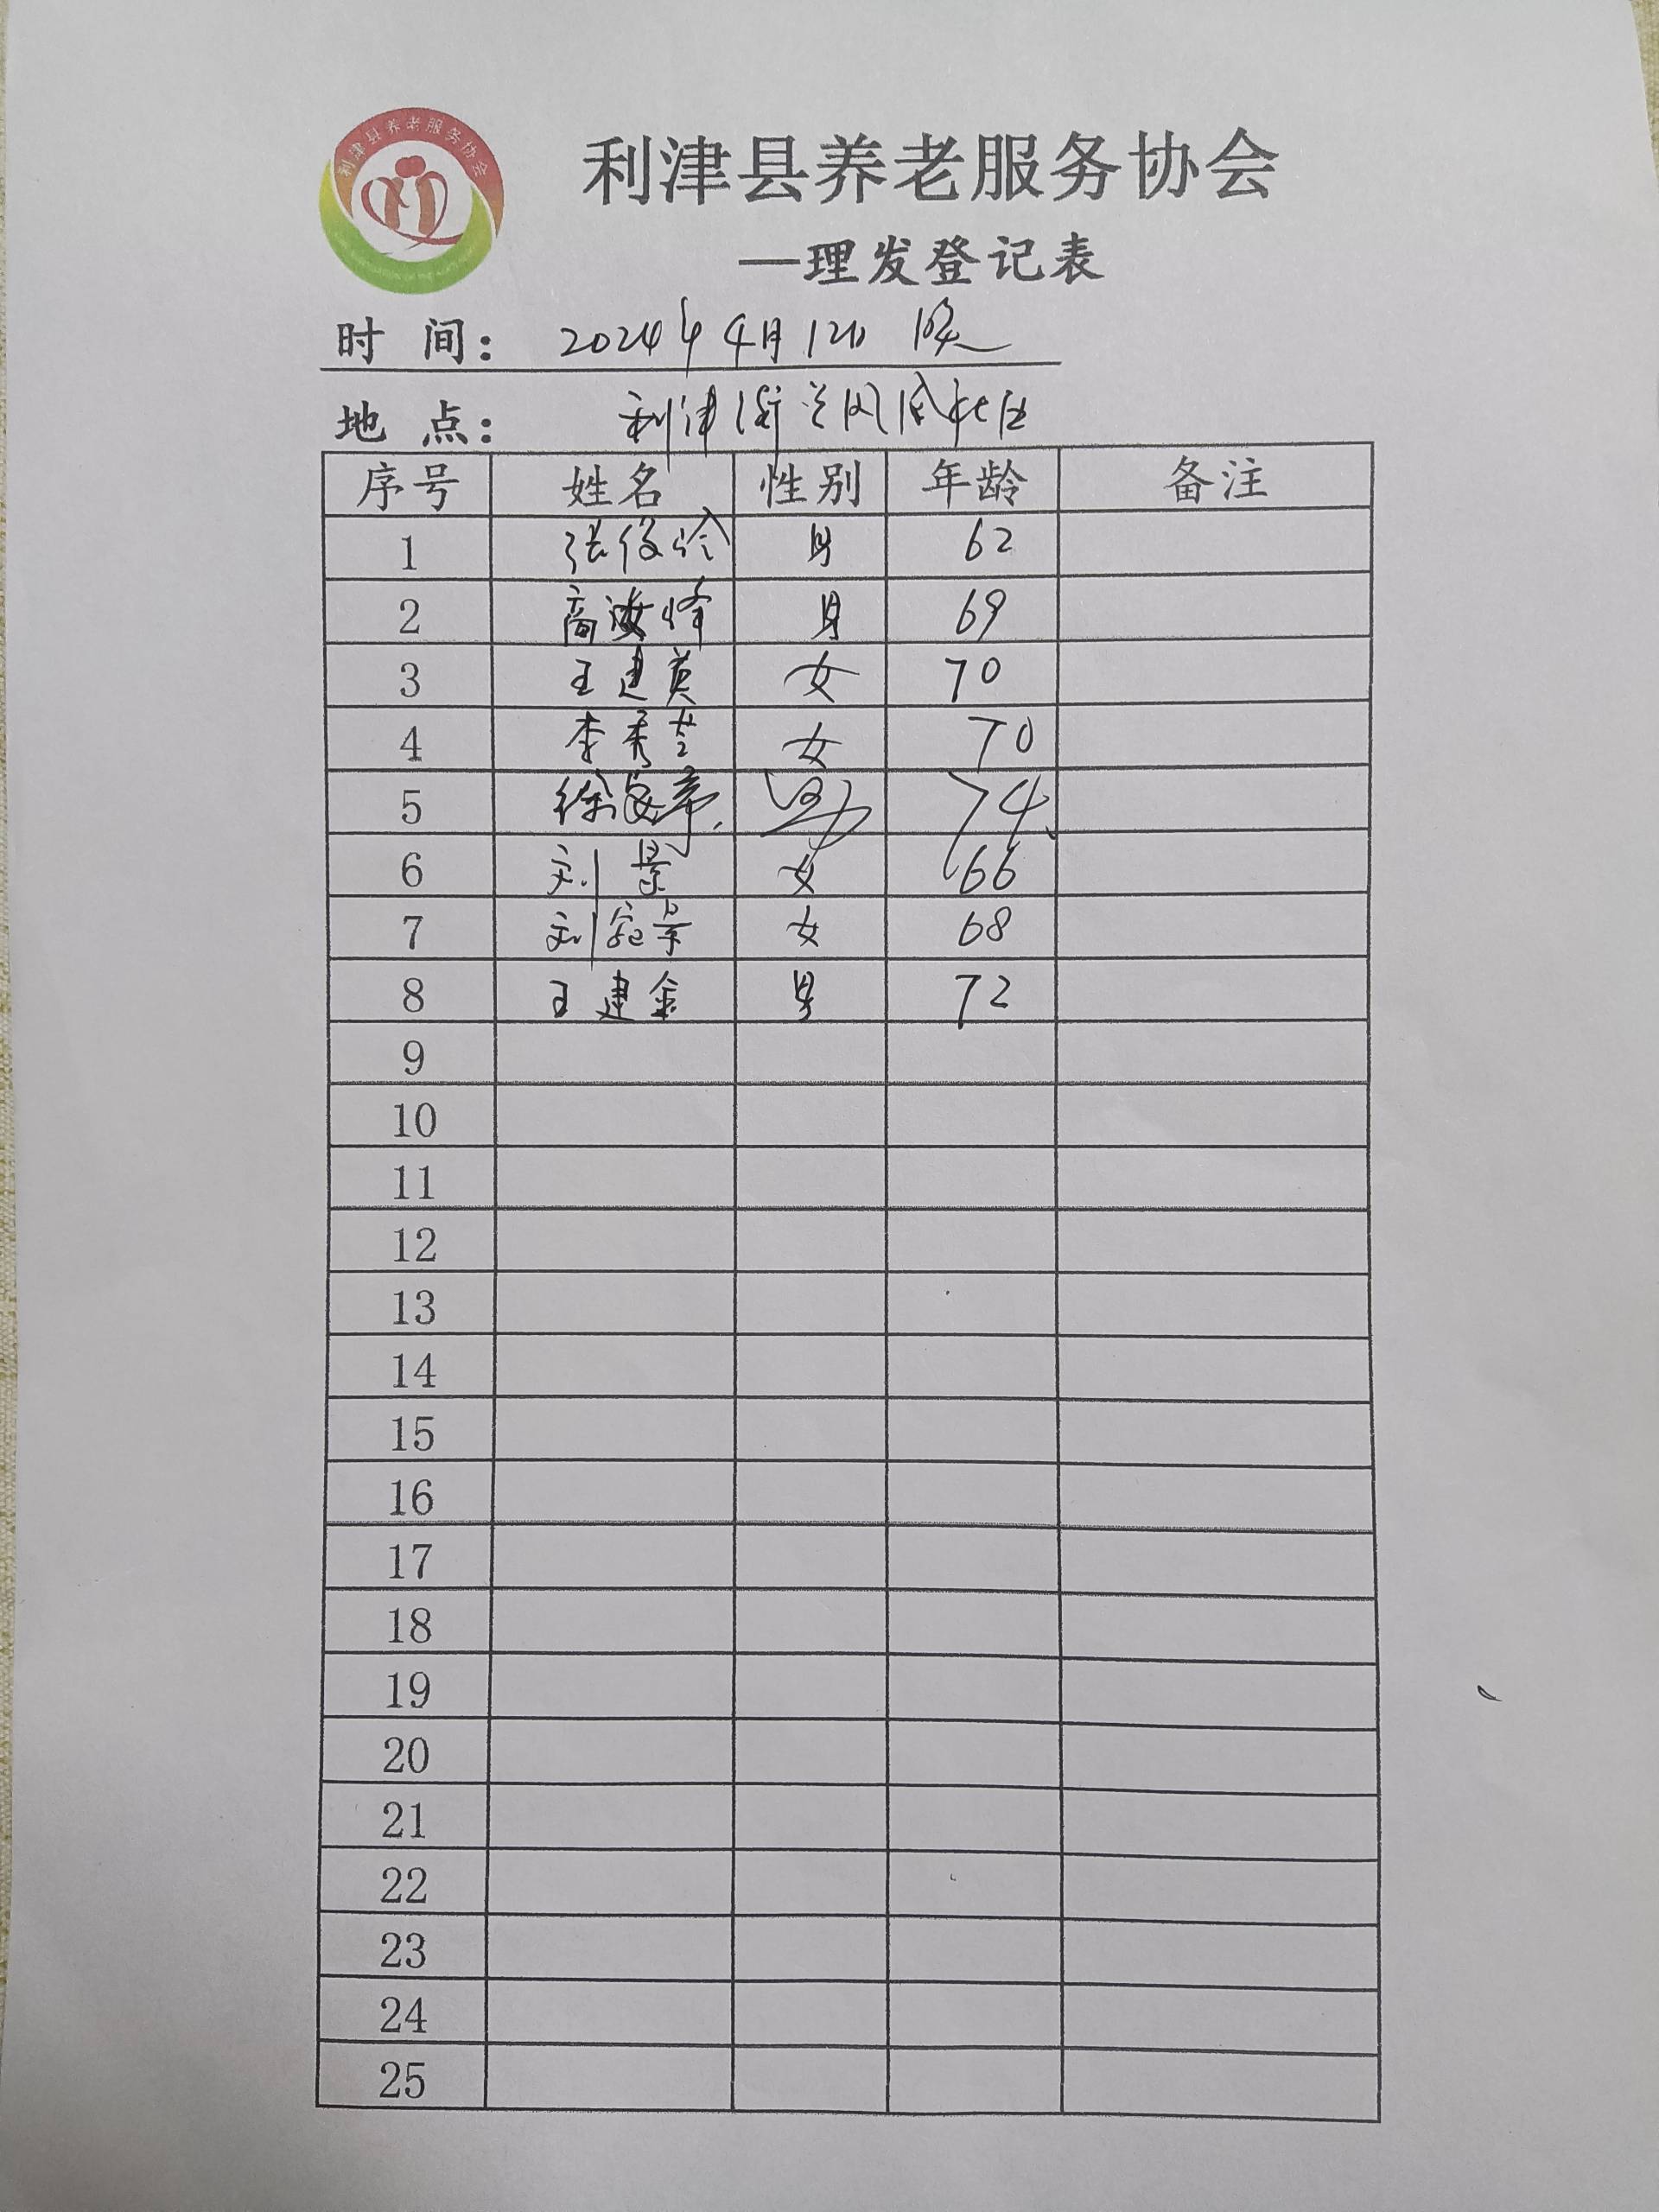 利津县养老服务协会
利津县养老服务协会
—理发登记表
时 间： 2024年4月12日
地 点： 利津街道凤凰社区
序号 姓名 性别 年龄 备注
1 张俊 男 62
2 高汝峰 男 69
3 王建英 女 70
4 李秀兰 女 70
5 徐 男 74
6 刘景 女 66
7 刘 景 女 68
8 王建金 男 72
9
10
11
12
13
14
15
16
17
18
19
20
21
22
23
24
25